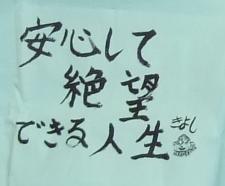 安心して
絶望
できる人生
きよし